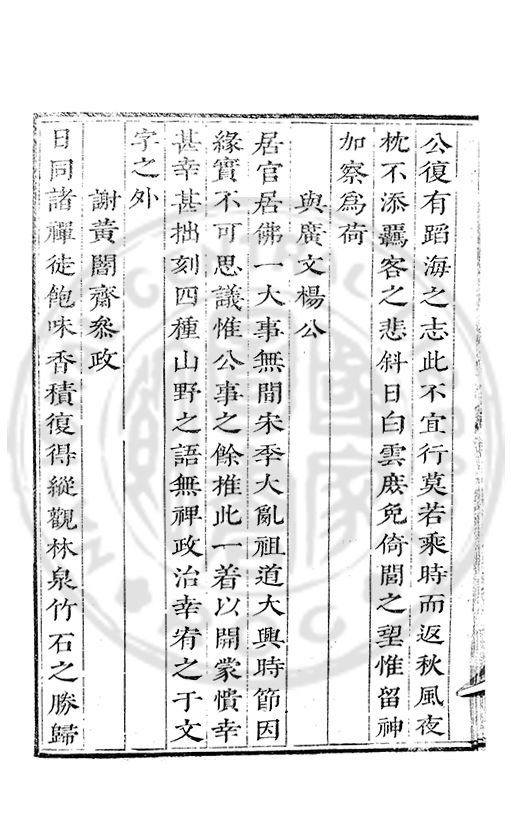 公復有蹈海之志此不宜行莫若乘時而返秋風夜
枕不添羈客之悲斜日白雲庶免倚閭之望惟留神
加察爲荷
與廣文楊公
居官居佛一大事無間宋季大亂祖道大興時節因
緣實不可思議惟公事之餘推此一着以開蒙憒幸
甚幸甚拙刻四種山野之語無裨政治幸宥之于文
字之外
謝黃闇齋叅政
日同諸禪徒飽味香積復得縱觀林泉竹石之勝歸